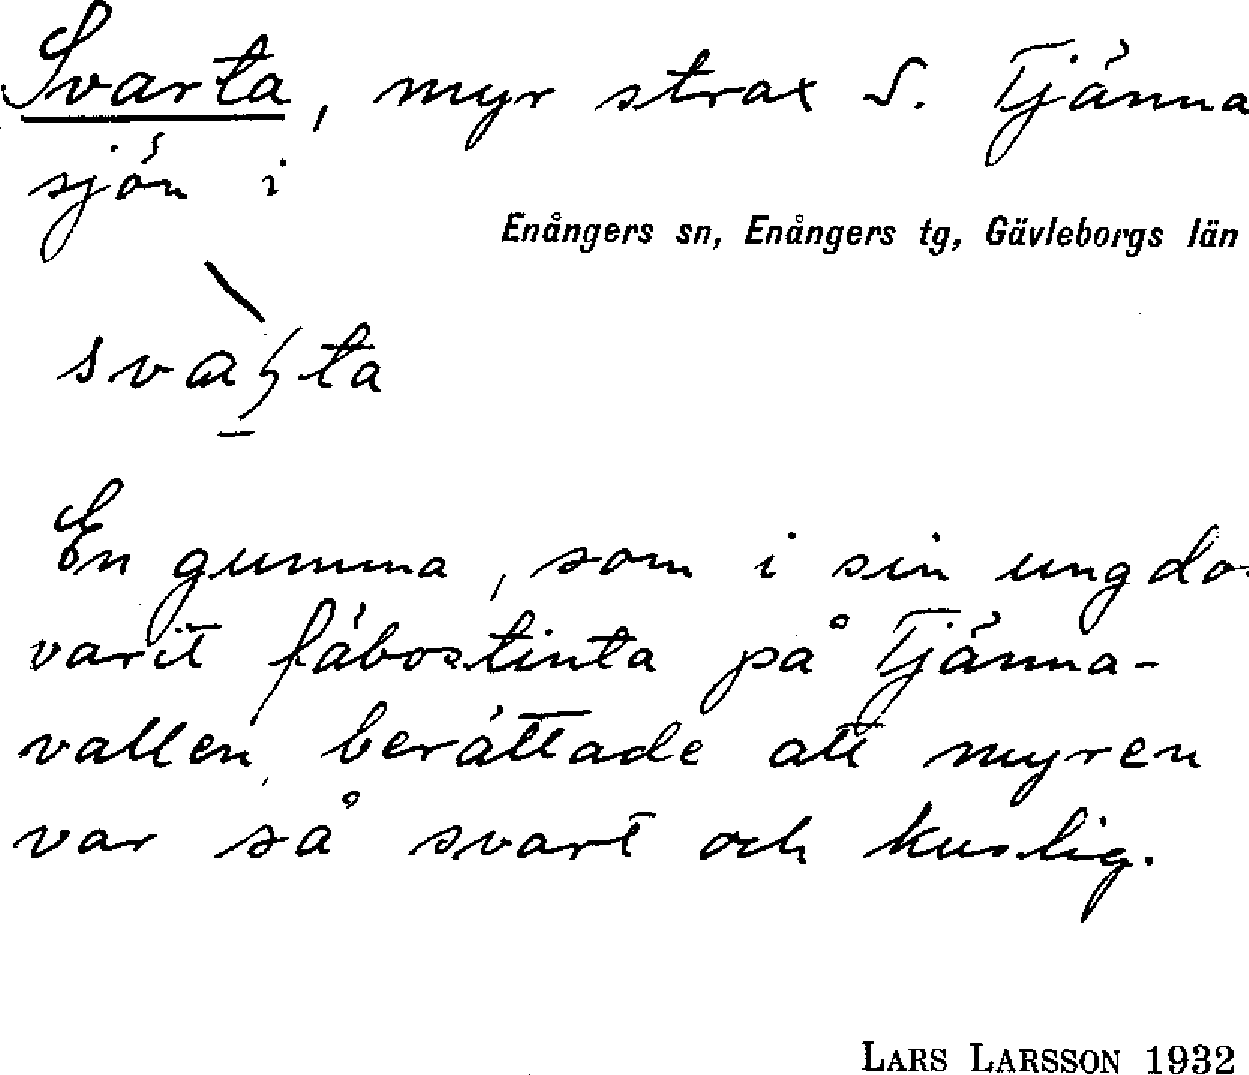 Svarta, myr strax S. Tjänna
sjön i
Enångers sn, Enångers tg, Gävleborgs län
En gumma, som i sin ungdo
varit fäbostinta på Tjänna-
vallen, berättade att myren
var så svart och kuslig.
LARS LARSSON 1932